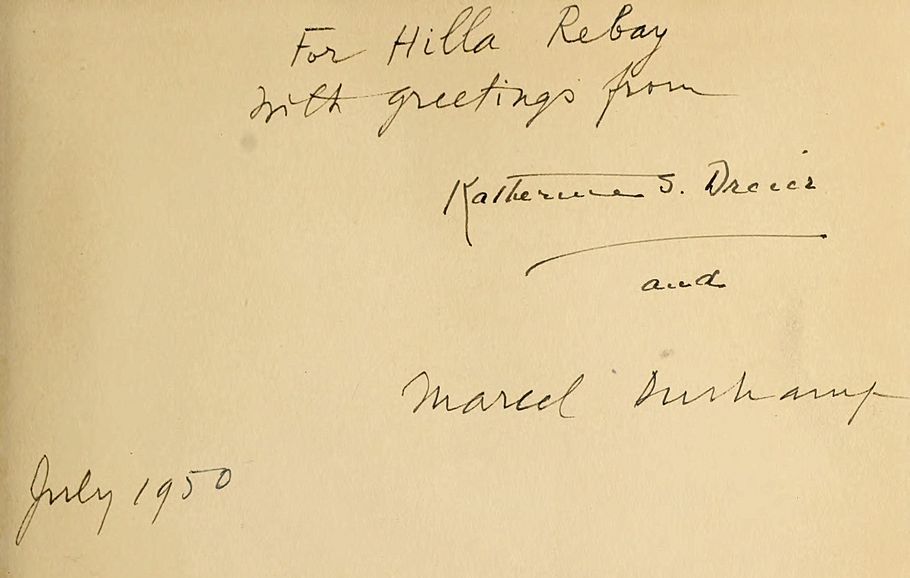 For Hilla Rebay
With greetings from
Katherine S. Dreier
and
Marcel Duchamp
July 1950